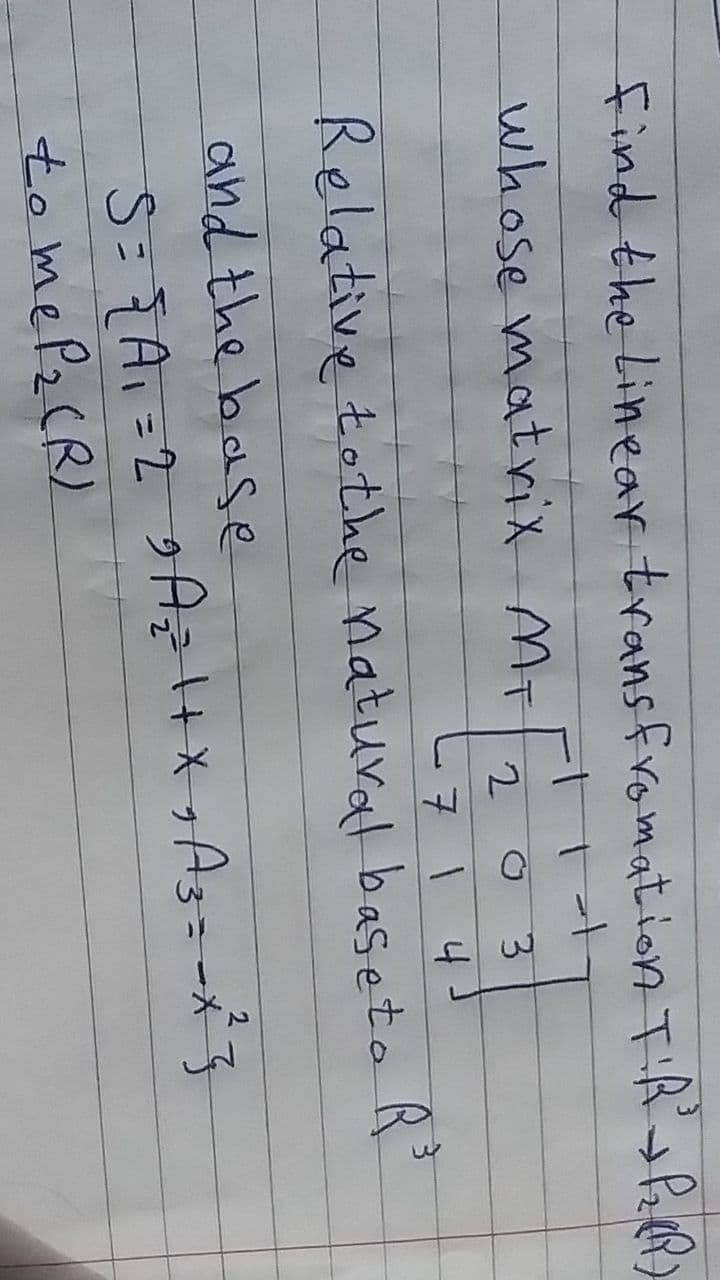 find the Linear transfromation T:R³→P₂(R)
whose matrix M_T [1 1 -1
2 0 3
7 1 4]
Relative to the natural base to R³
and the base
S={A₁=2, A₂=1+x, A₃=-x²}
to me P₂(R)